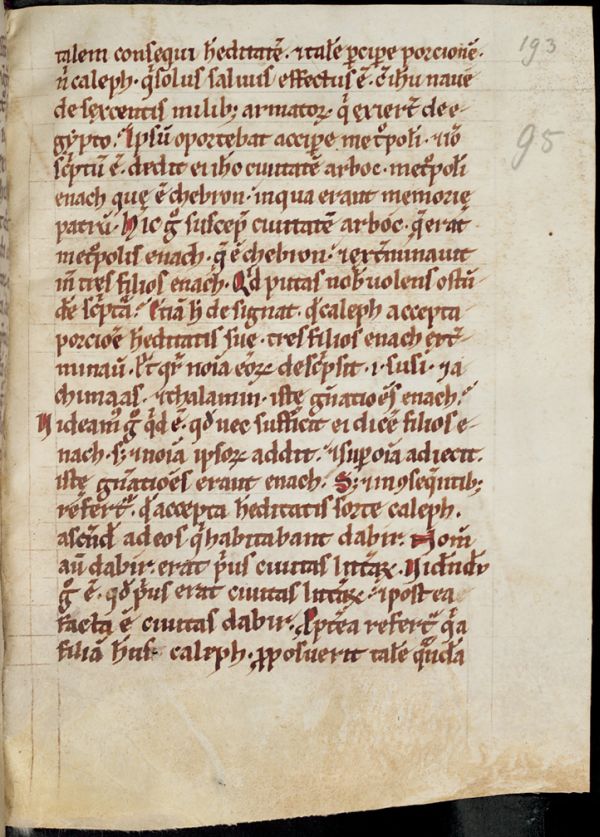 193
95
talem consequi h̄editatē. ⁊ talē p̄cipe porcionē.
n̄ caleph. q̄ solus saluus effectus ē. c̄ ihu naue
de sexcentis milib; armatoꝝ q̄ exiert̄ de e-
gypto. Ipsū oportebat accipe metͦpoli. ⁊ iō
sc̄ptū ē. dedit ei iho ciuitatē arboc. metͦpolī
enach quę ē chebron. in qua erant memorię
patrū. Hic gͦ suscep̄ ciuitatē arboc. q̄ erat
metͦpolis enach. q̄ ē chebron. ⁊ ext̄minauit
in̄ tres filios enach. Qd̄ putas nob̄ uolens ostū-
de sc̄pta. Etiā h̄ designat. qd̄ caleph accepta
porcioē h̄editatis suę. tres filios enach ext̄-
minau. Et qr̄ noīa eoꝝ desc̄psit. i. susi. ⁊ a
chimaas. ⁊ thalamin. istę gn̄atiōes enach.
Videam gͦ qd̄ ē. qd̄ nec sufficit ei dicē filios e-
nach. s; ⁊ noīa ipsoꝝ addit. ⁊ sup oīa adiecit.
istę gn̄atiōes erant enach. S; ⁊ in ꝯseq̄ntib;
refert̄. qd̄ accepta h̄editatis sorte caleph.
ascend̄ ad eos q̄ habitabant dabir. Nom̄
au dabir erat p̄us ciuitas litt̄aꝝ. Vidndū
gͦ ē. qd̄ p̄us erat ciuitas litt̄aꝝ. ⁊ postea
facta ē ciuitas dabir. P̄tea refert̄ q̄a
filiā caleph. p̄posuerit talē